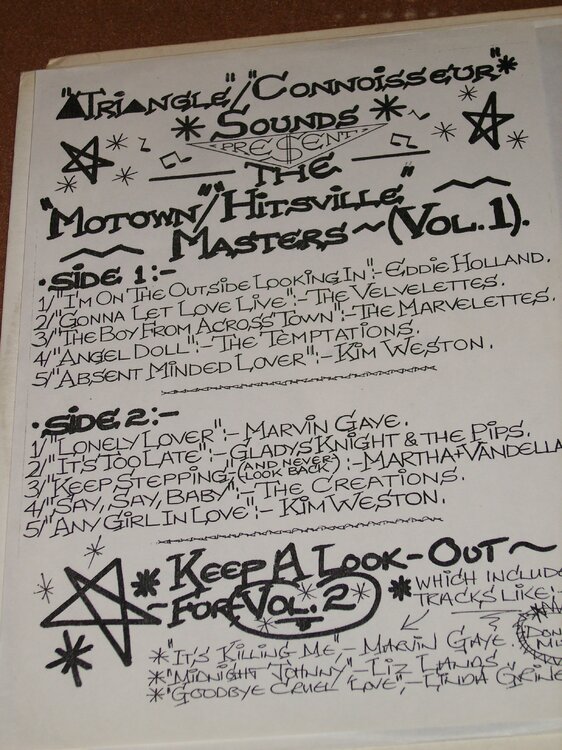 "TRIANGLE"/"CONNOISSEUR"*
* SOUNDS *
PRE$ENT
THE
"MOTOWN"/"HITSVILLE"
MASTERS ~ (VOL.1).
·SIDE 1:-
1/"I'M ON THE OUTSIDE LOOKING IN":- EDDIE HOLLAND.
2/"GONNA LET LOVE LIVE":- THE VELVELETTES.
3/"THE BOY FROM ACROSS TOWN":- THE MARVELETTES.
4/"ANGEL DOLL":- THE TEMPTATIONS.
5/"ABSENT MINDED LOVER":- KIM WESTON.
·SIDE 2:-
1/"LONELY LOVER":- MARVIN GAYE.
2/"IT'S TOO LATE":- GLADYS KNIGHT & THE PIPS.
3/"KEEP STEPPING" (AND NEVER LOOK BACK) :- MARTHA + VANDELLA
4/"SAY, SAY, BABY":- THE CREATIONS.
5/"ANY GIRL IN LOVE":- KIM WESTON.
* KEEP A LOOK-OUT ~
~ FOR VOL. 2
* WHICH INCLUDE
TRACKS LIKE:-
* "IT'S KILLING ME" - MARVIN GAYE.
* "MIDNIGHT JOHNNY" - LIZ LANDS
* "GOODBYE CRUEL LOVE", - LINDA GRINE
DON